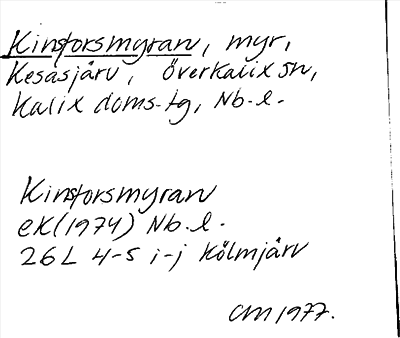 Kinsforsmyran, myr,
Kesasjärv, Överkalix sn,
Kalix doms. tg, Nb. l.
Kinsforsmyran
ek (1974) Nb. l.
26L 4-5 i-j Kölmjärv
CM 1977.